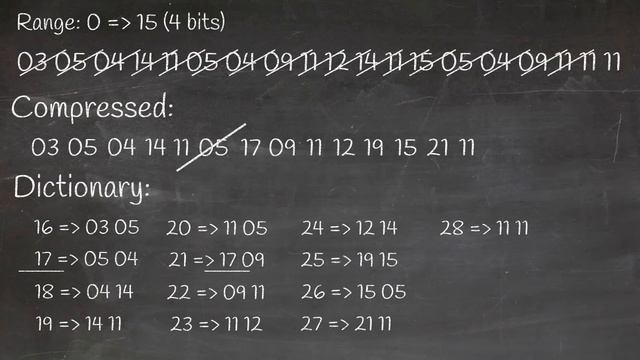 Range: 0 => 15 (4 bits)
03 05 04 14 11 05 04 09 11 12 14 11 15 05 04 09 11 11 11
Compressed:
03 05 04 14 11 05 17 09 11 12 19 15 21 11
Dictionary:
16 => 03 05 20 => 11 05 24 => 12 14 28 => 11 11
17 => 05 04 21 => 17 09 25 => 19 15
18 => 04 14 22 => 09 11 26 => 15 05
19 => 14 11 23 => 11 12 27 => 21 11